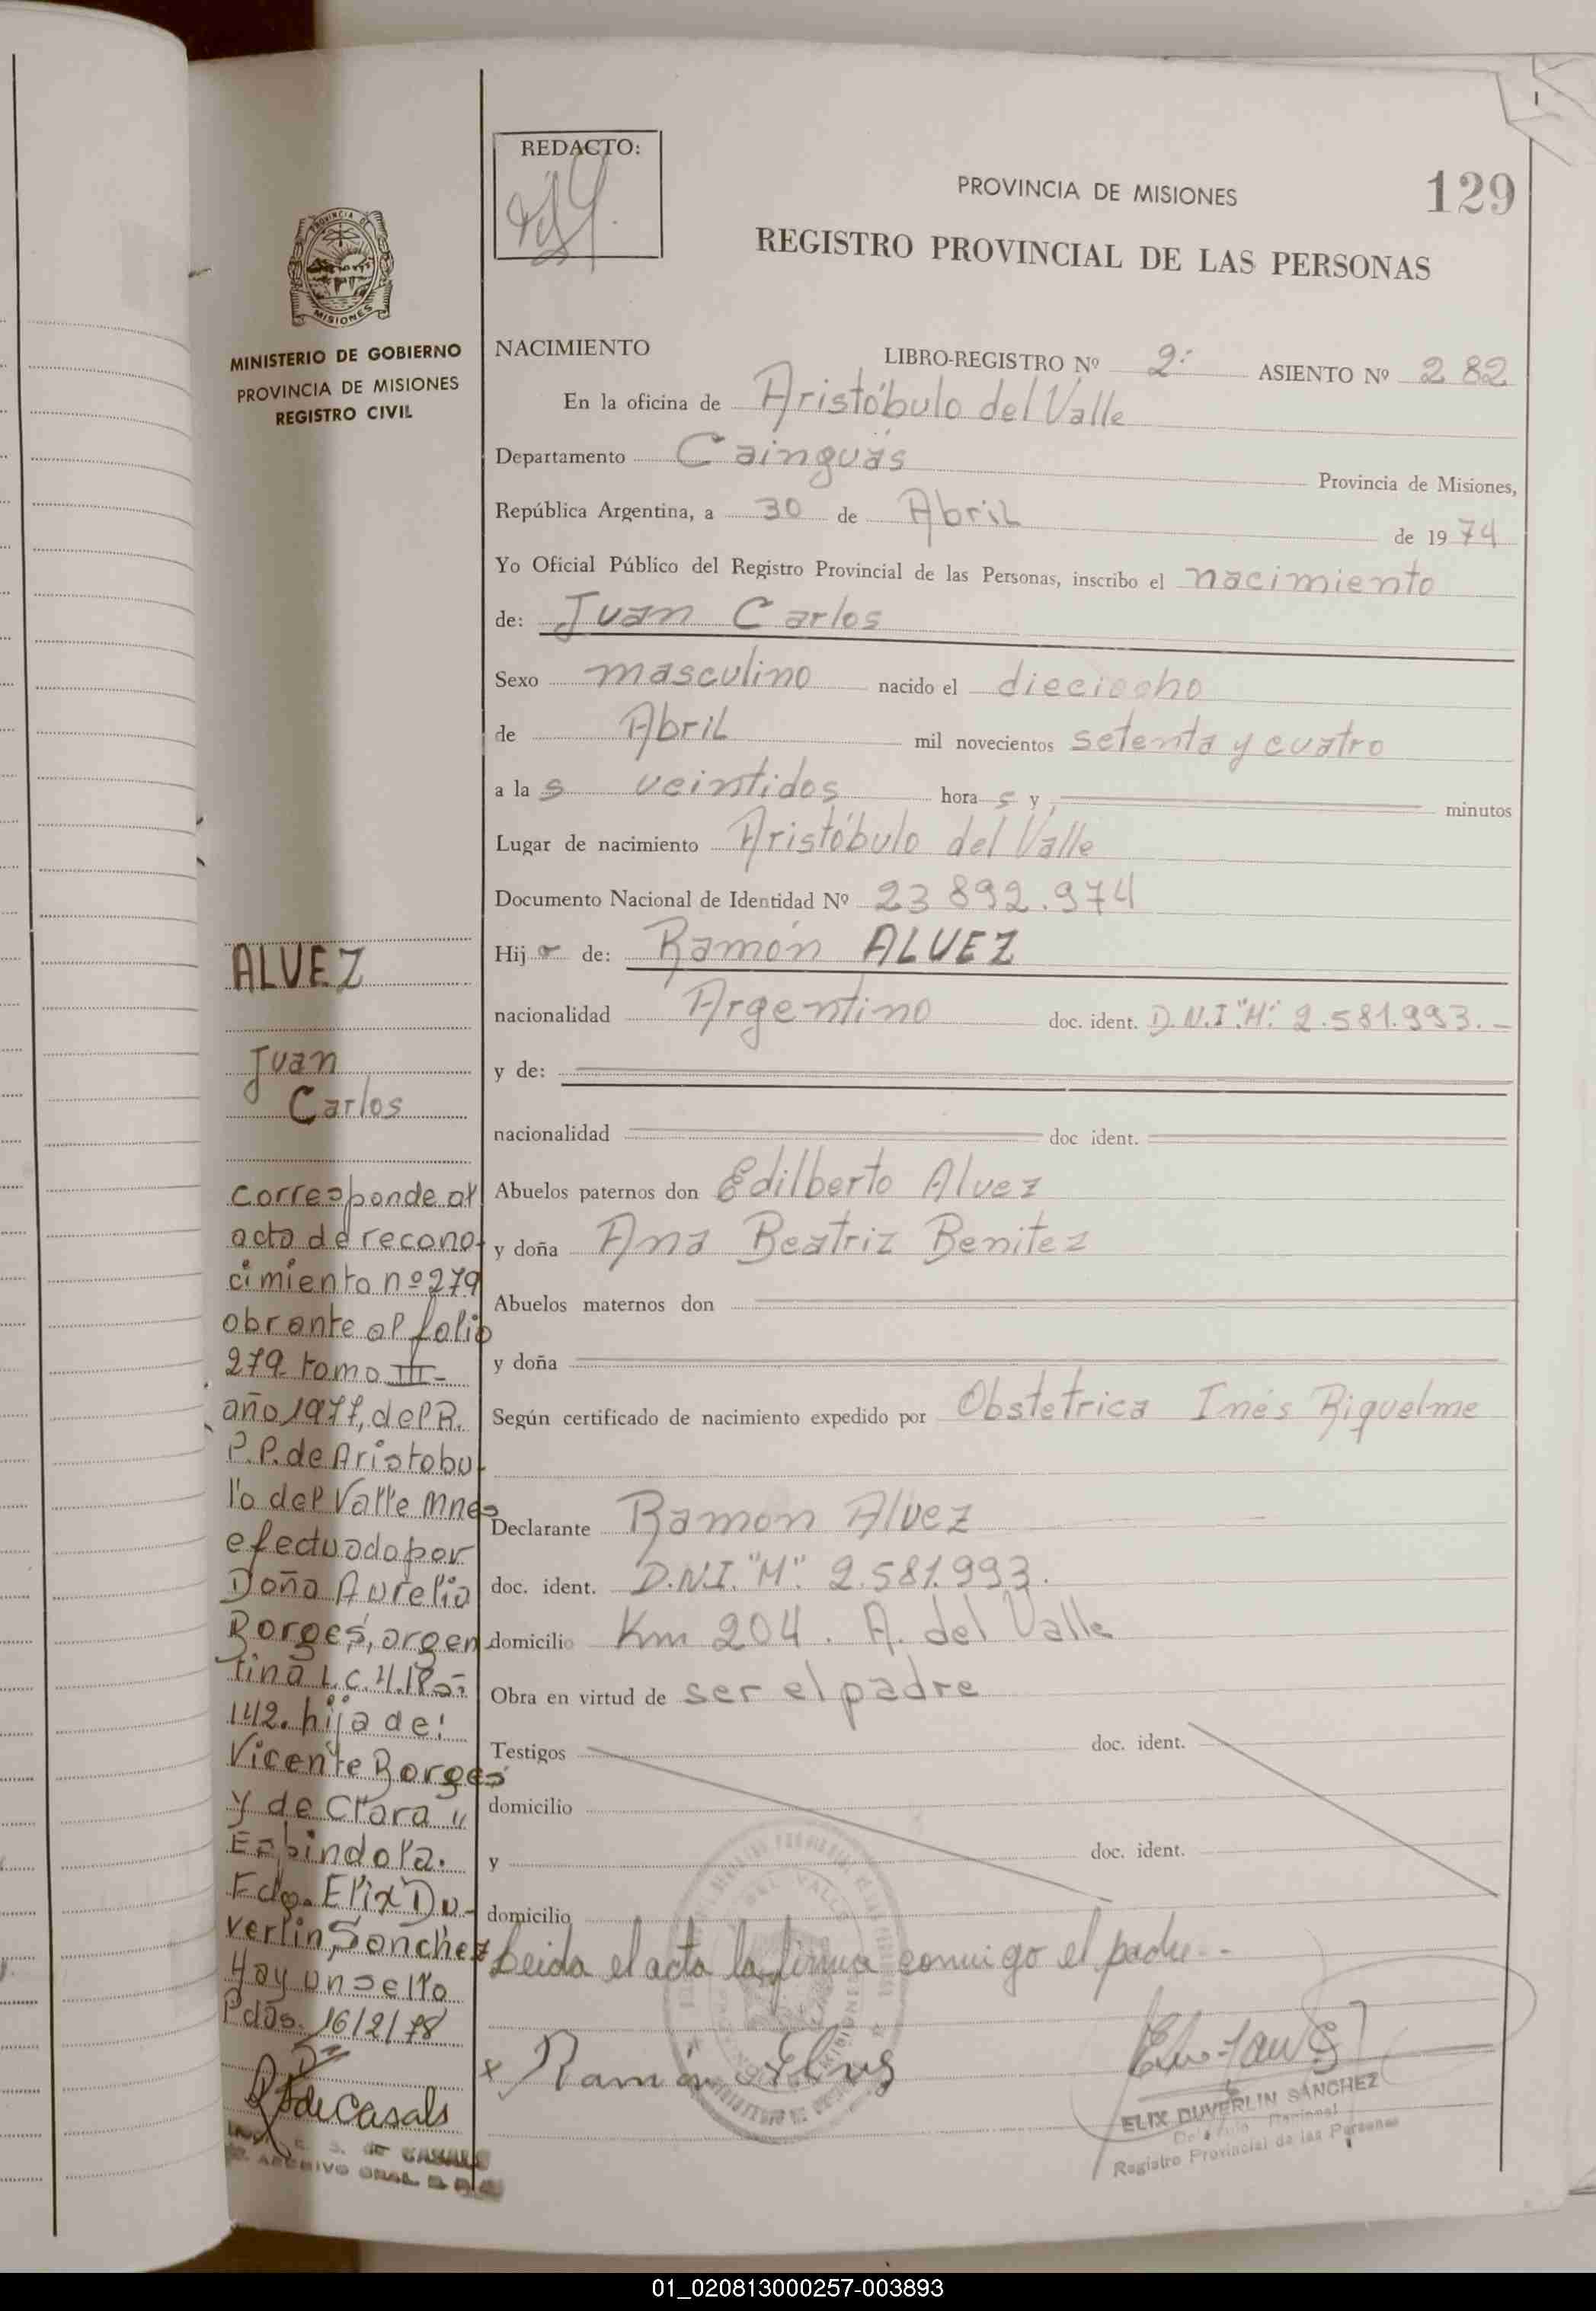 REDACTO:
PROVINCIA DE MISIONES
129
REGISTRO PROVINCIAL DE LAS PERSONAS
PROVINCIA DE
MISIONES
MINISTERIO DE GOBIERNO
PROVINCIA DE MISIONES
REGISTRO CIVIL
NACIMIENTO LIBRO-REGISTRO Nº 2º ASIENTO Nº 282
En la oficina de Aristóbulo del Valle
Departamento Cainguás Provincia de Misiones,
República Argentina, a 30 de Abril de 1974
Yo Oficial Público del Registro Provincial de las Personas, inscribo el nacimiento
de: Juan Carlos
Sexo masculino nacido el dieciocho
de Abril mil novecientos setenta y cuatro
a las veintidos horas y minutos
Lugar de nacimiento Aristóbulo del Valle
Documento Nacional de Identidad Nº 23 892.974
Hijo de: Ramón ALVEZ
nacionalidad Argentino doc. ident. D.N.I. "M". 2.581.993.-
y de:
nacionalidad doc ident.
Abuelos paternos don Edilberto Alvez
y doña Ana Beatriz Benitez
Abuelos maternos don
y doña
Según certificado de nacimiento expedido por Obstetrica Inés Riquelme
Declarante Ramon Alvez
doc. ident. D.N.I. "M". 2.581.993.
domicilio Km 204. A. del Valle
Obra en virtud de ser el padre
Testigos doc. ident.
domicilio
y doc. ident.
domicilio
Leida el acta la firma conmigo el padre.-
x Ramón
ELIX DUVERLIN SANCHEZ
Registro Provincial de las Personas
ALVEZ
Juan
Carlos
corresponde al
acta de recono-
cimiento nº 279
obrante al folio
279 tomo III-
año 1977, del R.
P.P. de Aristobu-
lo del Valle Mnes
efectuado por
Doña Aurelia
Borges, argen
tina L.C. 4.185-
142. hija de:
Vicente Borges
y de Clara
Espindola.
Fdo. Elix Du-
verlin Sanchez
Hay un sello
Pdas. 16/2/78
de Casals
01_020813000257-003893